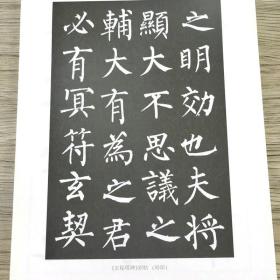 之明効也夫将
顯大不思議之
輔大有為之君
必有冥符玄契
《玄秘塔碑》原帖（局部）